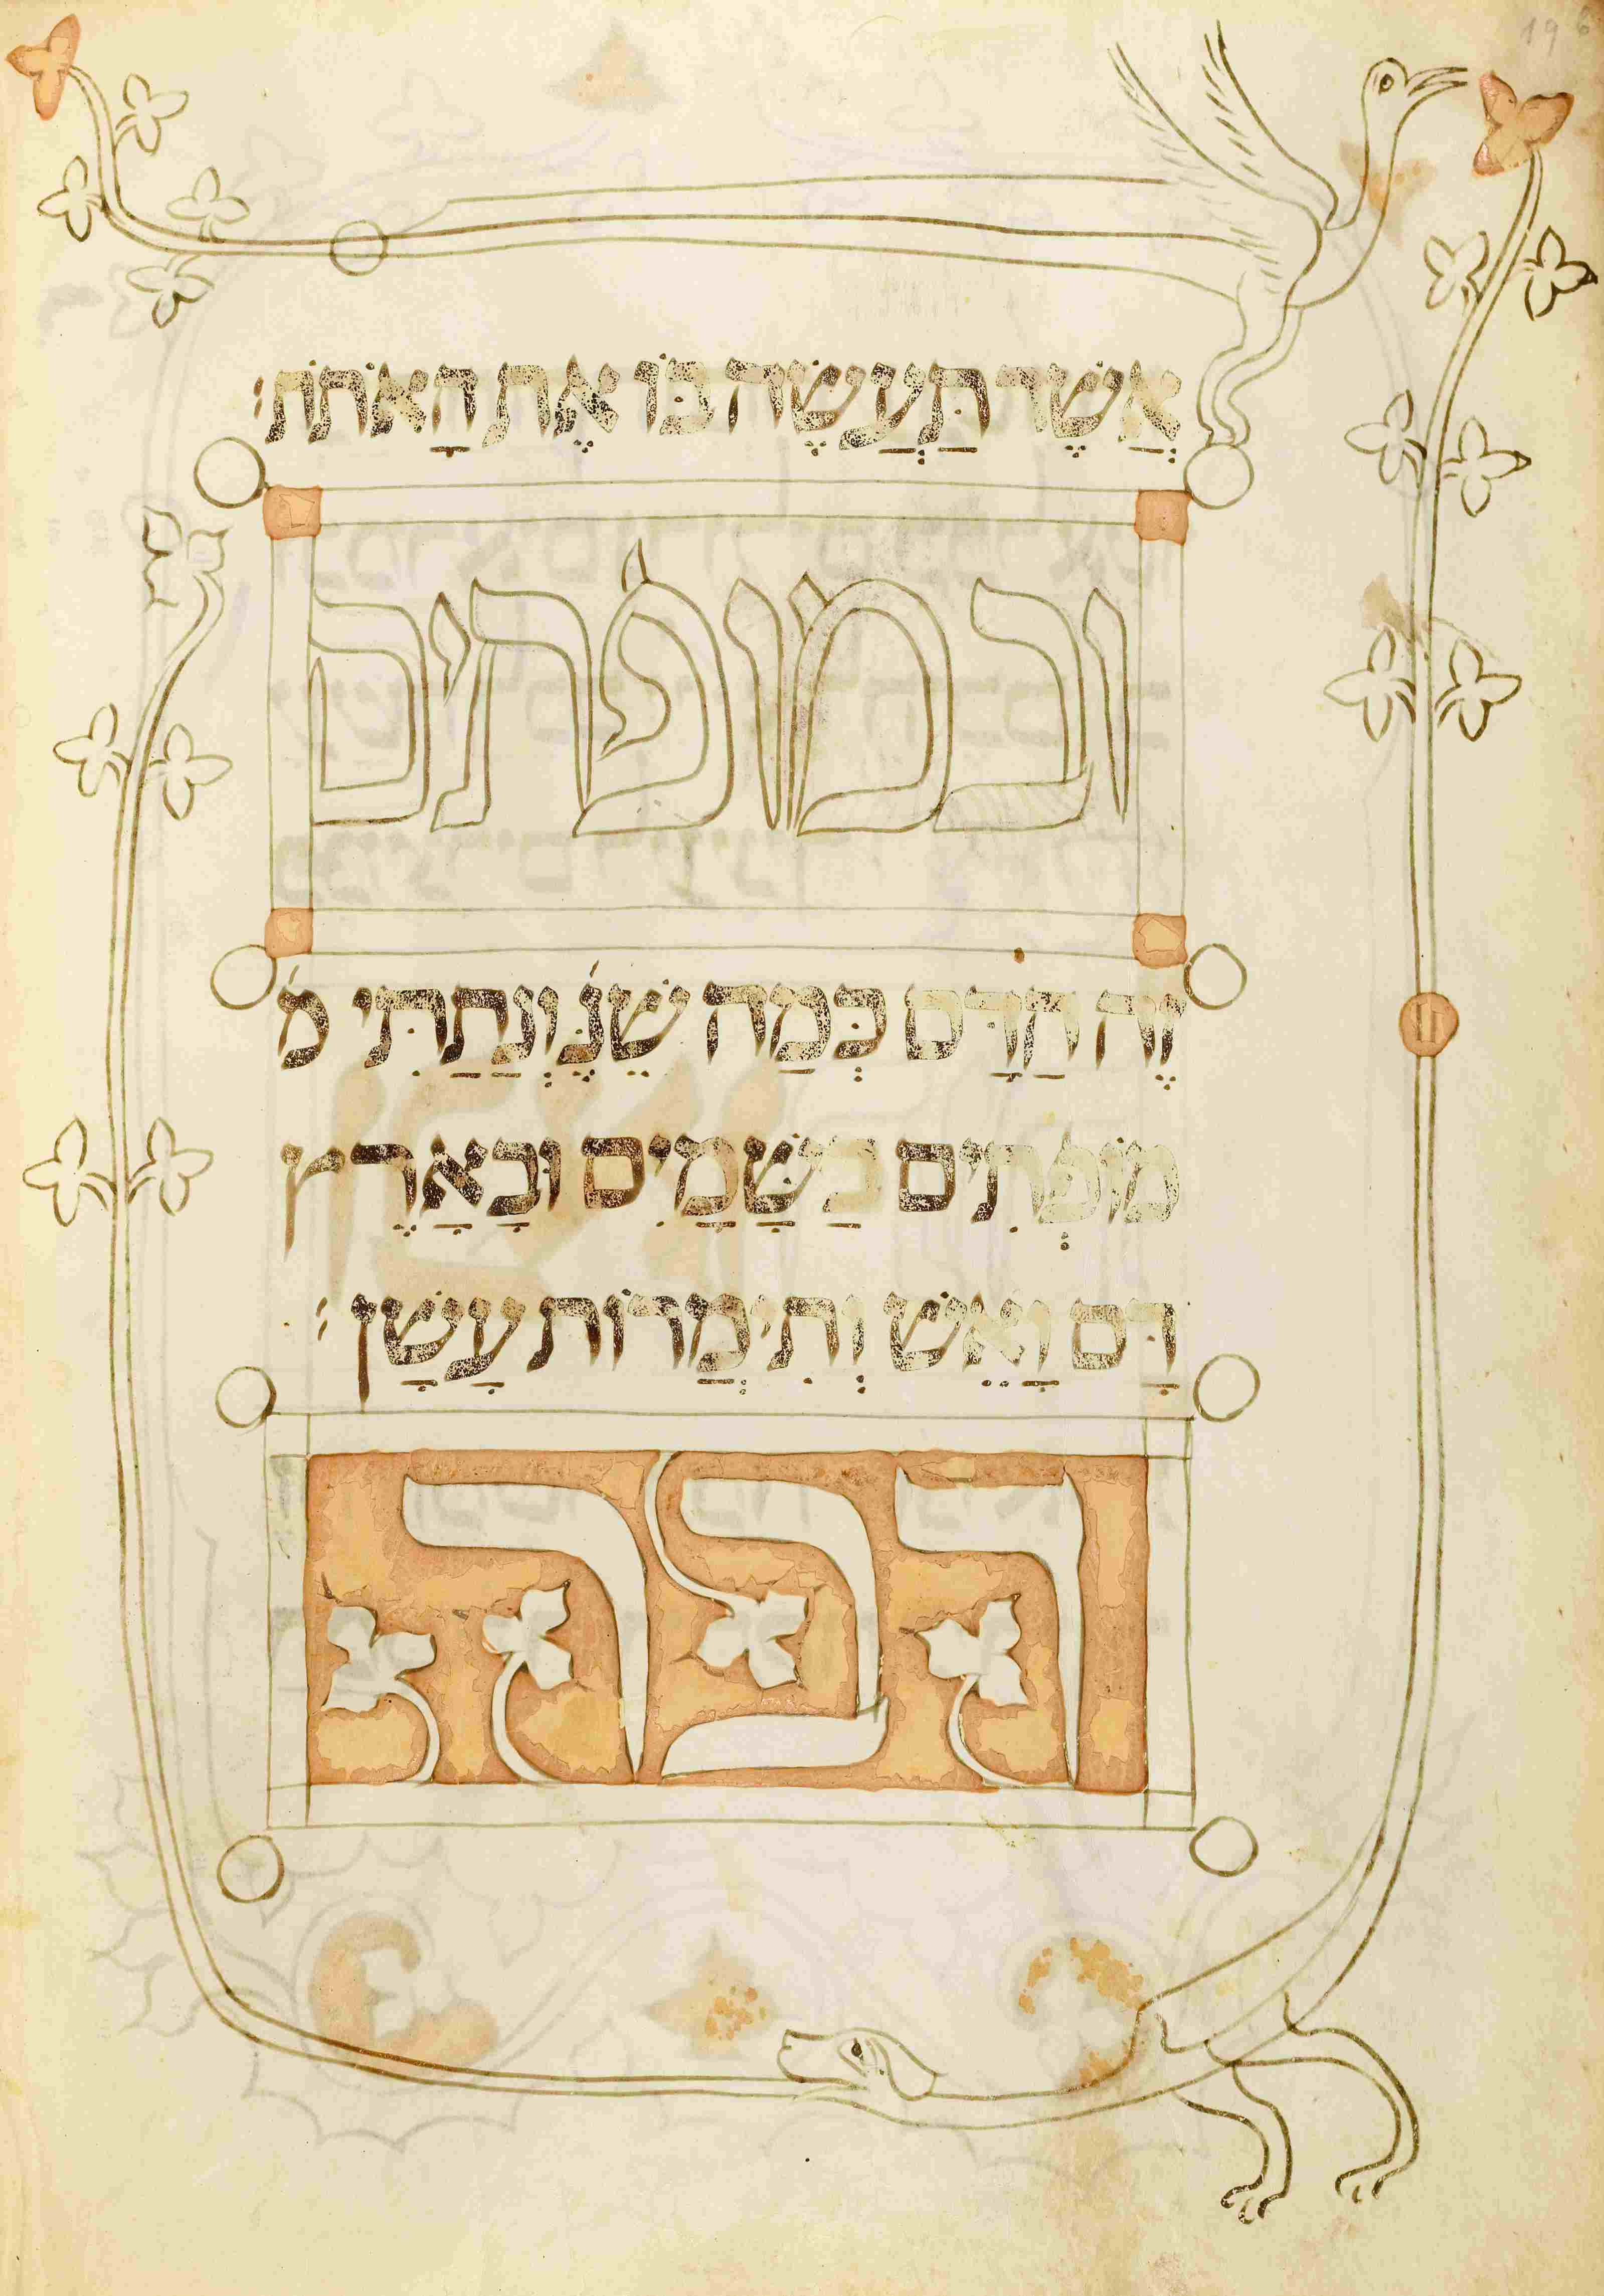 אֲשֶׁר תַּעֲשֶׂה בּוֹ אֶת הָאֹתֹת׃
ובמופתים
זֶה הַדָּם כְּמַה שֵׁנֶּ׳ וְנָתַתִּי מ׳
מוֹפְתִים בַּשָּׁמַיִם וּבָאָרֶץ
דָּם וָאֵשׁ וְתִימֲרוֹת עָשָׁן׃